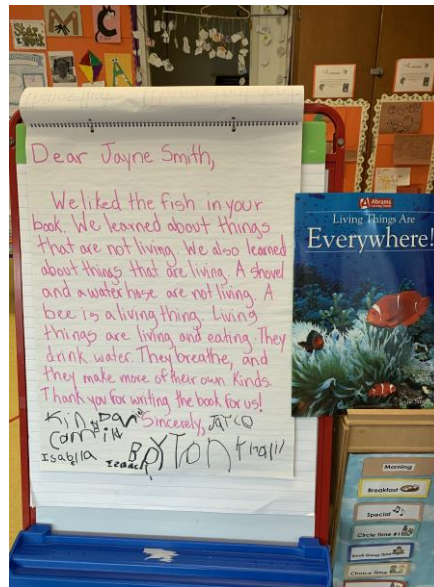 Dear Jayne Smith,
We liked the fish in your
book. We learned about things
that are not living. We also learned
about things that are living. A shovel
and a water hose are not living. A
bee is a living thing. Living
things are living and eating. They
drink water. They breathe, and
they make more of their own kinds.
Thank you for writing the book for us!
Sincerely,
Isabella
Abrams
Living Things Are
Everywhere!
Morning
Breakfast
Special
Circle Time #1
Small Group Time
Choice Time